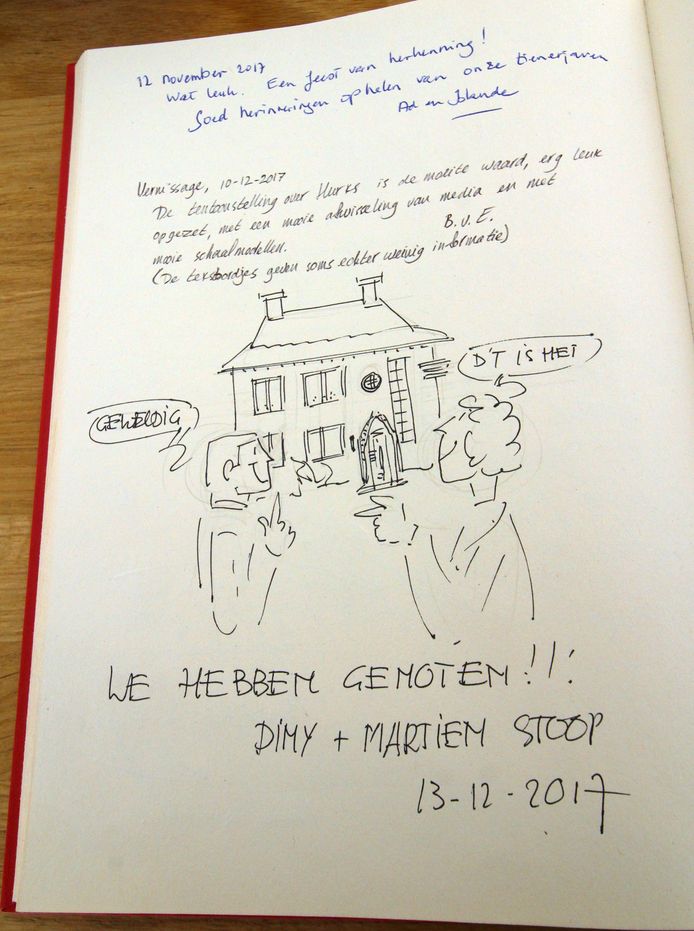 12 november 2017
Wat leuk. Een feest van herkenning!
Goed herinneringen ophelen van onze tienerjaren
Ad en Jolanda
Vernissage, 10-12-2017
De tentoonstelling over Hurks is de moeite waard, erg leuk
opgezet, met een mooie afwisseling van media en met
mooie schaalmodellen.
B.v.E.
(De tekstbordjes geven soms echter weinig informatie)
D'T IS HET
GEWELDIG
WE HEBBEN GENOTEN!!!
DIMY + MARTIEN STOOP
13-12-2017